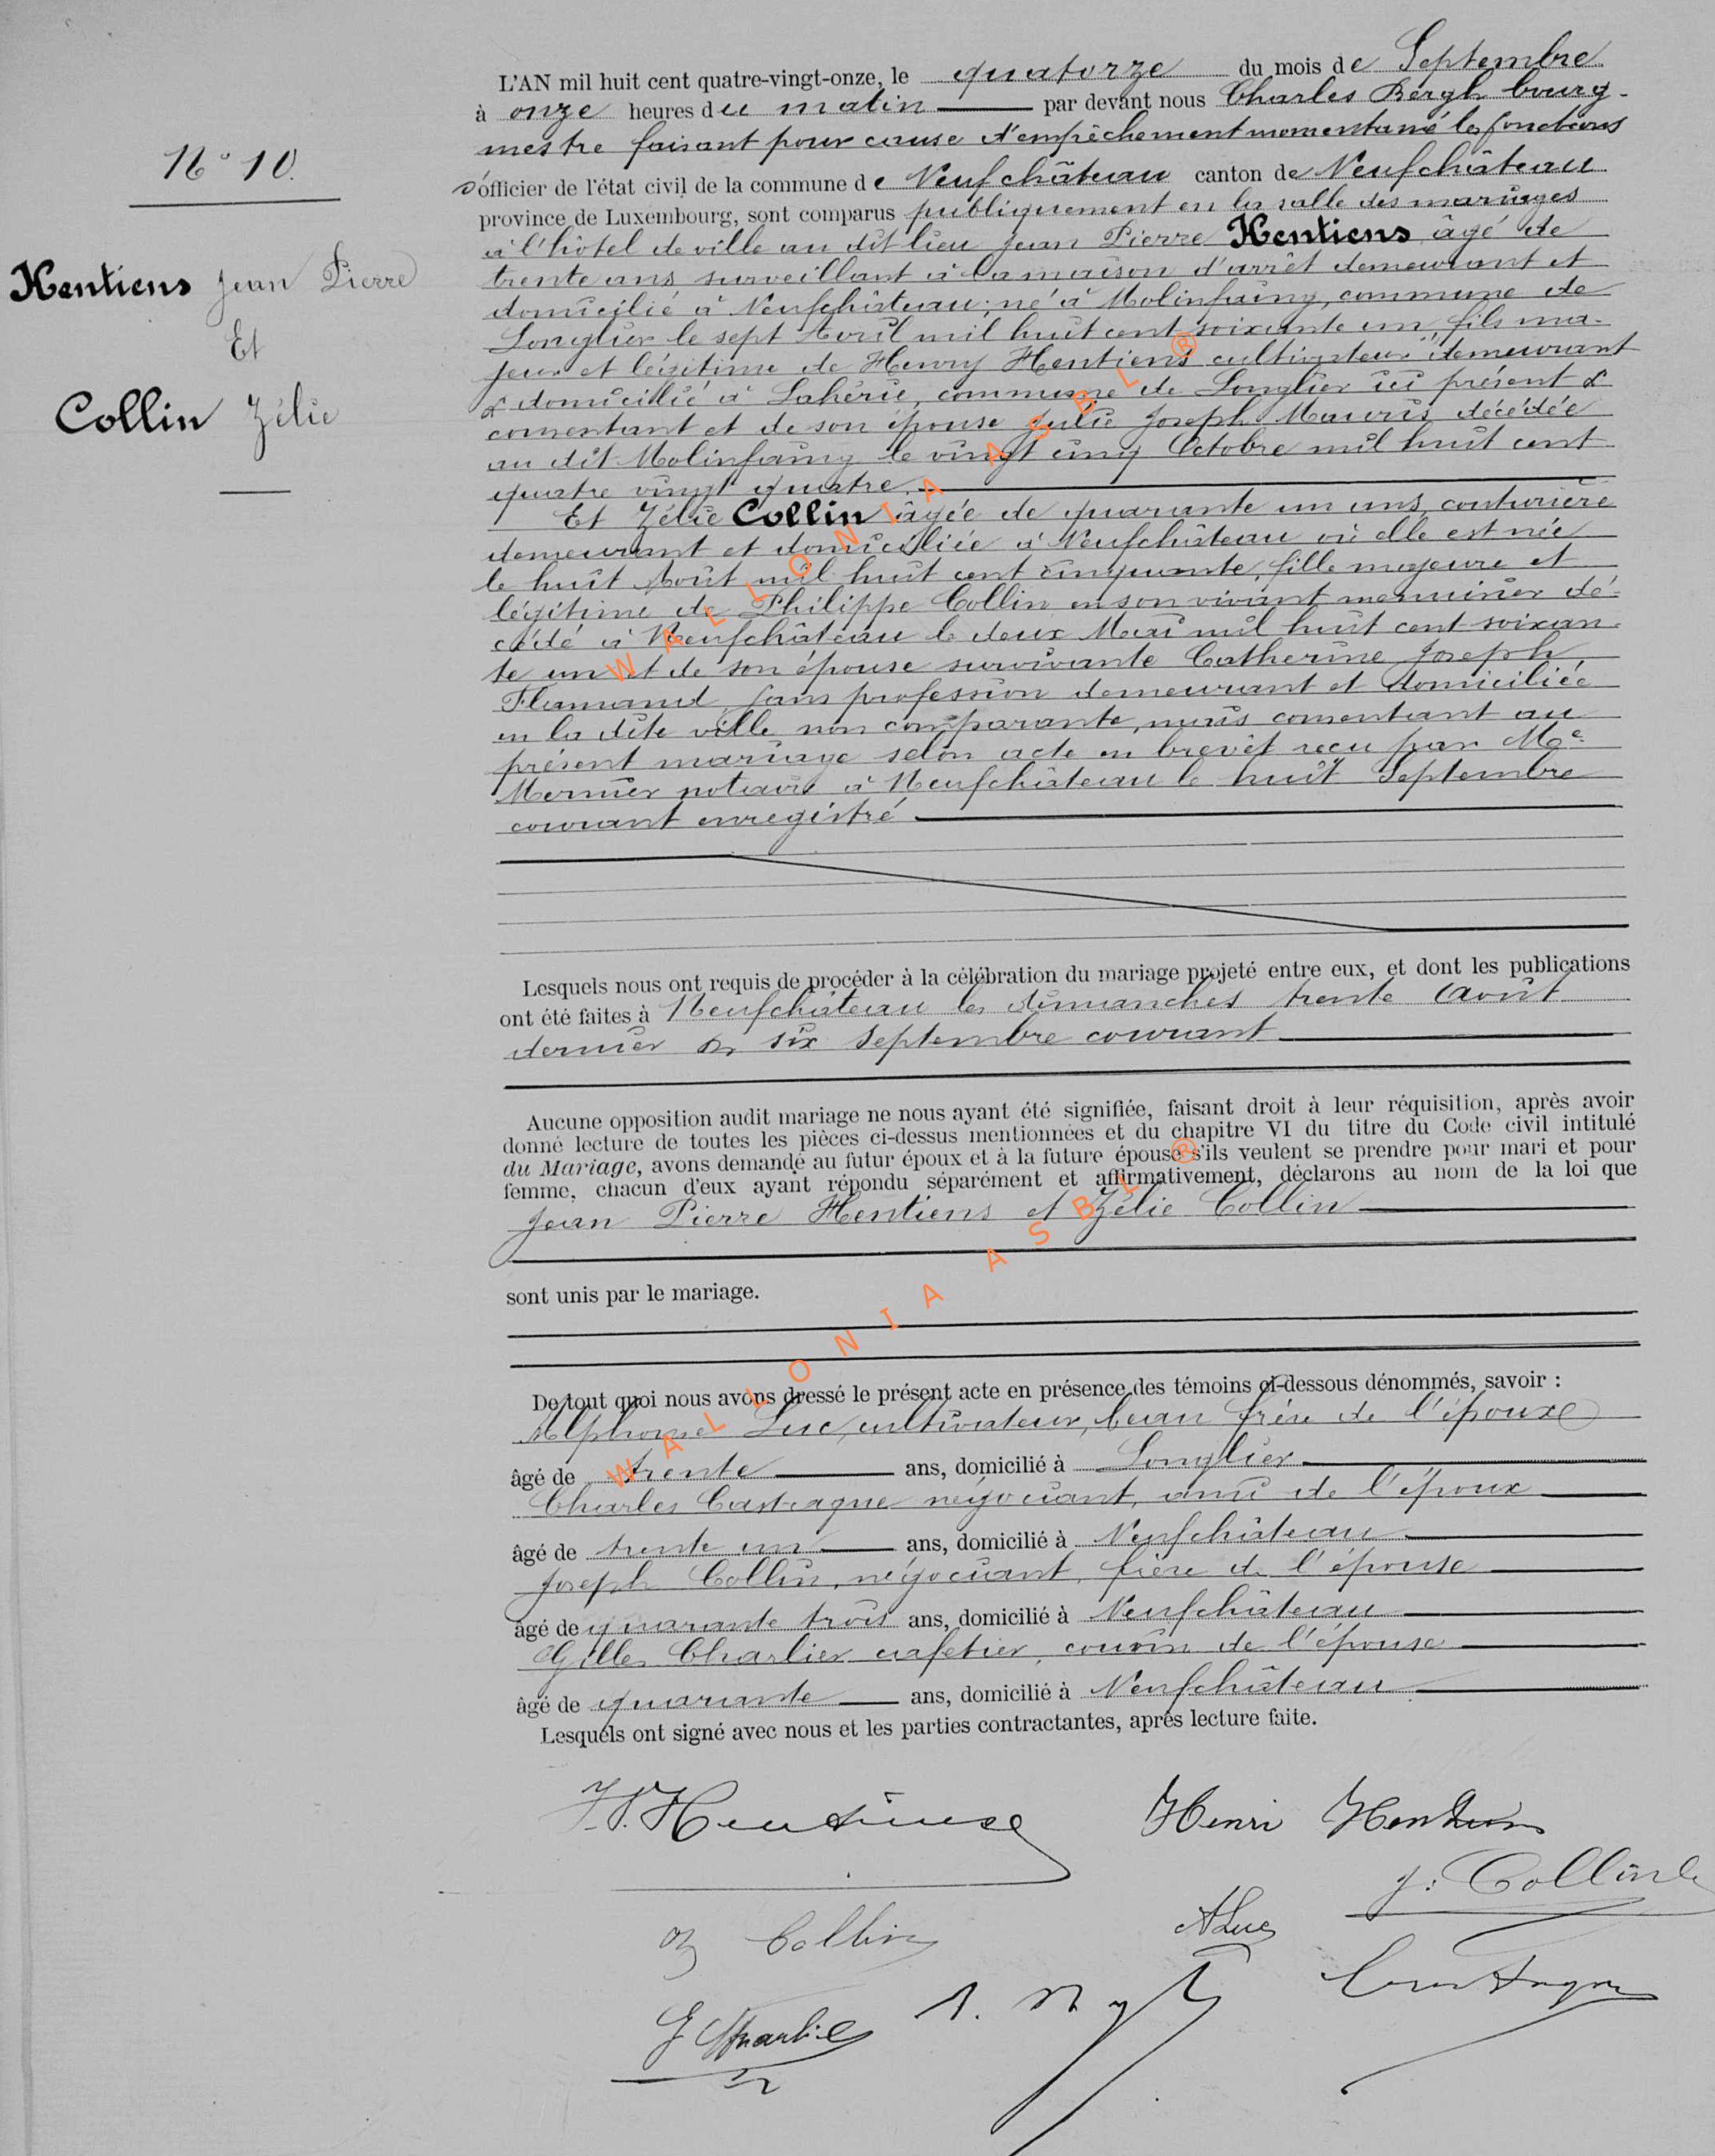 N° 10.
Hentiens Jean Pierre
Et
Collin Zélie
L'AN mil huit cent quatre-vingt-onze, le quatorze du mois de Septembre
à onze heures du matin par devant nous Charles Bergh bourg-
mestre faisant pour cause d'empêchement momentané les fonctions
d'officier de l'état civil de la commune de Neufchâteau canton de Neufchâteau
province de Luxembourg, sont comparus publiquement en la salle des mariages
à l'hôtel de ville au dit lieu Jean Pierre Hentiens âgé de
trente ans surveillant à la maison d'arrêt demeurant et
domicilié à Neufchâteau; né à Molinfaing, commune de
Longlier le sept Avril mil huit cent soixante un, fils ma-
jeur et légitime de Henry Hentiens cultivateur demeurant
& domicilié à Lahérie, commune de Longlier ici présent &
consentant et de son épouse Julie Joseph Mauris décédée
au dit Molinfaing le vingt cinq Octobre mil huit cent
quatre vingt quatre.
Et Zélie Collin âgée de quarante un ans, couturière
demeurant et domiciliée à Neufchâteau où elle est née
le huit Août mil huit cent cinquante, fille majeure et
légitime de Philippe Collin en son vivant menuisier dé-
cédé à Neufchâteau le deux Mai mil huit cent soixan-
te un et de son épouse survivante Catherine Joseph
Flamand, sans profession demeurant et domiciliée
en la dite ville non comparante, mais consentant au
présent mariage selon acte en brevet reçu par Me
Mernier notaire à Neufchâteau le huit Septembre
courant enregistré
Lesquels nous ont requis de procéder à la célébration du mariage projeté entre eux, et dont les publications
ont été faites à Neufchâteau les dimanches trente Août
dernier & six Septembre courant
Aucune opposition audit mariage ne nous ayant été signifiée, faisant droit à leur réquisition, après avoir
donné lecture de toutes les pièces ci-dessus mentionnées et du chapitre VI du titre du Code civil intitulé
du Mariage, avons demandé au futur époux et à la future épouse s'ils veulent se prendre pour mari et pour
femme, chacun d'eux ayant répondu séparément et affirmativement, déclarons au nom de la loi que
Jean Pierre Hentiens et Zélie Collin
sont unis par le mariage.
De tout quoi nous avons dressé le présent acte en présence des témoins ci-dessous dénommés, savoir :
Alphonse Luc, cultivateur, beau frère de l'époux
âgé de trente ans, domicilié à Longlier
Charles Castagne négociant, ami de l'époux
âgé de trente un ans, domicilié à Neufchâteau
Joseph Collin, négociant, frère de l'épouse
âgé de quarante trois ans, domicilié à Neufchâteau
Gilles Charlier cafetier, cousin de l'épouse
âgé de quarante ans, domicilié à Neufchâteau
Lesquels ont signé avec nous et les parties contractantes, après lecture faite.
J.P. Hentiens Henri Hentiens
J: Collin
Z Collin ALuc
Castagne
G Charlier
WALLONIA ASBL ®
WALLONIA ASBL ®